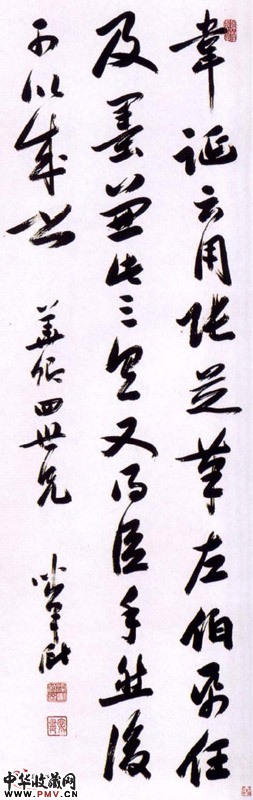 韋誕云用張芝筆左伯帋任
及墨兼此三具又得臣手然後
可以成書 華卿四世兄
中华收藏网
WWW.PMV.CN